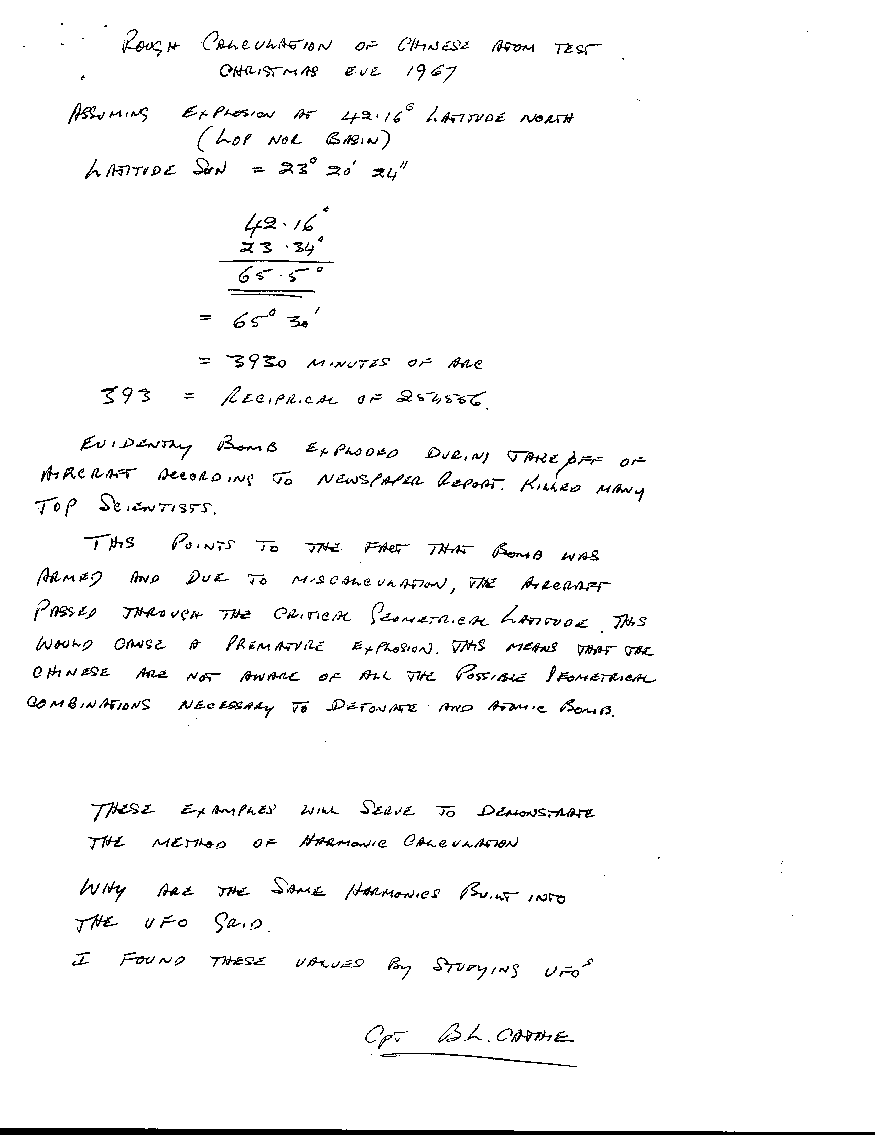 ROUGH CALCULATION OF CHINESE ATOM TEST
CHRISTMAS EVE 1967
ASSUMING EXPLOSION AT 42.16° LATITUDE NORTH
(LOP NOR BASIN)
LATITUDE SUN = 23° 20' 24"
42.16°
23.34°
65.5°
= 65° 30'
= 3930 MINUTES OF ARC
393 = RECIPRICAL OF 254556.
EVIDENTLY BOMB EXPLODED DURING TAKE OFF OF
AIRCRAFT ACCORDING TO NEWSPAPER REPORT. KILLED MANY
TOP SCIENTISTS.
THIS POINTS TO THE FACT THAT BOMB WAS
ARMED AND DUE TO MISCALCULATION, THE AIRCRAFT
PASSED THROUGH THE CRITICAL GEOMETRICAL LATITUDE. THIS
WOULD CAUSE A PREMATURE EXPLOSION. THIS MEANS THAT THE
CHINESE ARE NOT AWARE OF ALL THE POSSIBLE GEOMETRICAL
COMBINATIONS NECESSARY TO DETONATE AND ATOMIC BOMB.
THESE EXAMPLES WILL SERVE TO DEMONSTRATE
THE METHOD OF HARMONIC CALCULATION
WHY ARE THE SAME HARMONICS BUILT INTO
THE UFO GRID.
I FOUND THESE VALUES BY STUDYING UFOS
CPT B.L. CATHIE